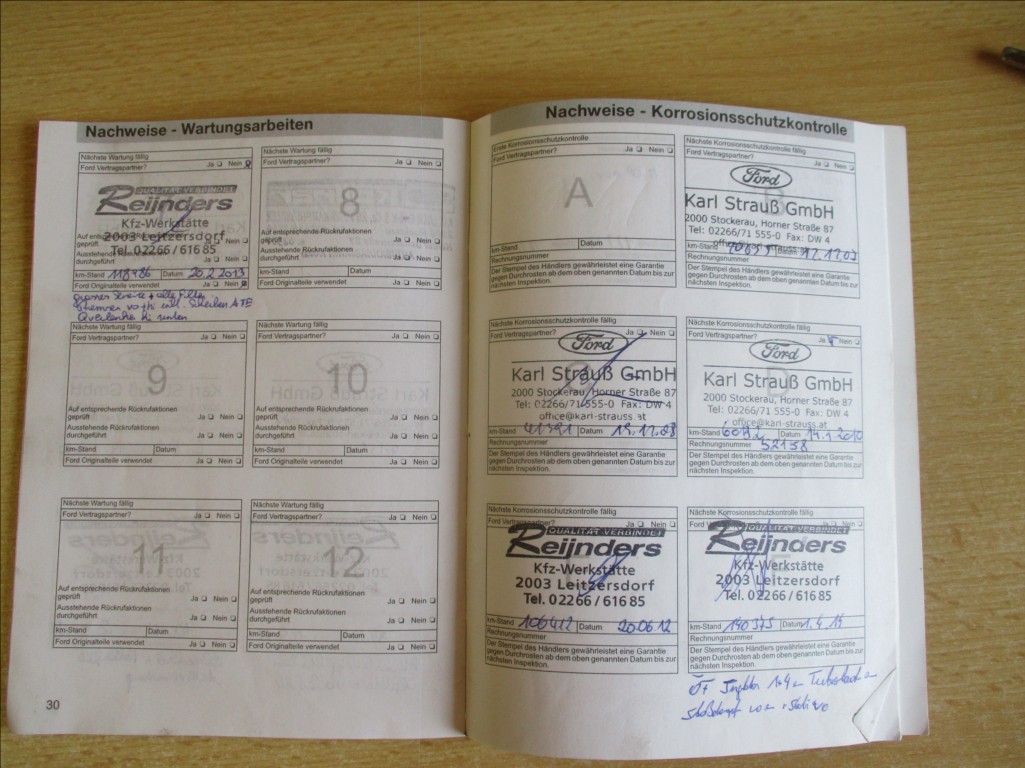 Nachweise - Wartungsarbeiten
Nächste Wartung fällig
Ford Vertragspartner? Ja Nein
QUALITÄT VERBINDET
Reijnders
Kfz-Werkstätte
2003 Leitzersdorf
Tel. 02266/61685
Auf entsprechende Rückrufaktionen
geprüft Ja Nein
Ausstehende Rückrufaktionen
durchgeführt Ja Nein
km-Stand 118486 Datum 20.2.2013
Ford Originalteile verwendet Ja Nein
+ alle Filter
Nächste Wartung fällig
Ford Vertragspartner? Ja Nein
8
Auf entsprechende Rückrufaktionen
geprüft Ja Nein
Ausstehende Rückrufaktionen
durchgeführt Ja Nein
km-Stand Datum
Ford Originalteile verwendet Ja Nein
Nächste Wartung fällig
Ford Vertragspartner? Ja Nein
9
Auf entsprechende Rückrufaktionen
geprüft Ja Nein
Ausstehende Rückrufaktionen
durchgeführt Ja Nein
km-Stand Datum
Ford Originalteile verwendet Ja Nein
Nächste Wartung fällig
Ford Vertragspartner? Ja Nein
10
Auf entsprechende Rückrufaktionen
geprüft Ja Nein
Ausstehende Rückrufaktionen
durchgeführt Ja Nein
km-Stand Datum
Ford Originalteile verwendet Ja Nein
Nächste Wartung fällig
Ford Vertragspartner? Ja Nein
11
Auf entsprechende Rückrufaktionen
geprüft Ja Nein
Ausstehende Rückrufaktionen
durchgeführt Ja Nein
km-Stand Datum
Ford Originalteile verwendet Ja Nein
Nächste Wartung fällig
Ford Vertragspartner? Ja Nein
12
Auf entsprechende Rückrufaktionen
geprüft Ja Nein
Ausstehende Rückrufaktionen
durchgeführt Ja Nein
km-Stand Datum
Ford Originalteile verwendet Ja Nein
30
Nachweise - Korrosionsschutzkontrolle
Erste Korrosionsschutzkontrolle
Ford Vertragspartner? Ja Nein
A
km-Stand Datum
Rechnungsnummer
Der Stempel des Händlers gewährleistet eine Garantie
gegen Durchrosten ab dem oben genannten Datum bis zur
nächsten Inspektion.
Nächste Korrosionsschutzkontrolle fällig
Ford Vertragspartner? Ja Nein
Ford
Karl Strauß GmbH
2000 Stockerau, Horner Straße 87
Tel: 02266/71 555-0 Fax: DW 4
office@karl-strauss.at
km-Stand Datum 12.12.07
Rechnungsnummer
Der Stempel des Händlers gewährleistet eine Garantie
gegen Durchrosten ab dem oben genannten Datum bis zur
nächsten Inspektion.
Nächste Korrosionsschutzkontrolle fällig
Ford Vertragspartner? Ja Nein
Ford
Karl Strauß GmbH
2000 Stockerau, Horner Straße 87
Tel: 02266/71 555-0 Fax: DW 4
office@karl-strauss.at
km-Stand 41391 Datum 19.12.08
Rechnungsnummer
Der Stempel des Händlers gewährleistet eine Garantie
gegen Durchrosten ab dem oben genannten Datum bis zur
nächsten Inspektion.
Nächste Korrosionsschutzkontrolle fällig
Ford Vertragspartner? Ja Nein
Ford
Karl Strauß GmbH
2000 Stockerau, Horner Straße 87
Tel: 02266/71 555-0 Fax: DW 4
office@karl-strauss.at
km-Stand Datum 14.1.2010
Rechnungsnummer 52158
Der Stempel des Händlers gewährleistet eine Garantie
gegen Durchrosten ab dem oben genannten Datum bis zur
nächsten Inspektion.
Nächste Korrosionsschutzkontrolle fällig
Ford Vertragspartner? Ja Nein
QUALITÄT VERBINDET
Reijnders
Kfz-Werkstätte
2003 Leitzersdorf
Tel. 02266/61685
km-Stand 106412 Datum 20.06.12
Rechnungsnummer
Der Stempel des Händlers gewährleistet eine Garantie
gegen Durchrosten ab dem oben genannten Datum bis zur
nächsten Inspektion.
Nächste Korrosionsschutzkontrolle fällig
Ja Nein
QUALITÄT VERBINDET
Reijnders
Kfz-Werkstätte
2003 Leitzersdorf
Tel. 02266/61685
km-Stand 140375 Datum 1.4.14
Rechnungsnummer
Der Stempel des Händlers gewährleistet eine Garantie
gegen Durchrosten ab dem oben genannten Datum bis zur
nächsten Inspektion.